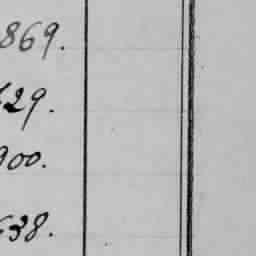 869.
29.
900.
38.